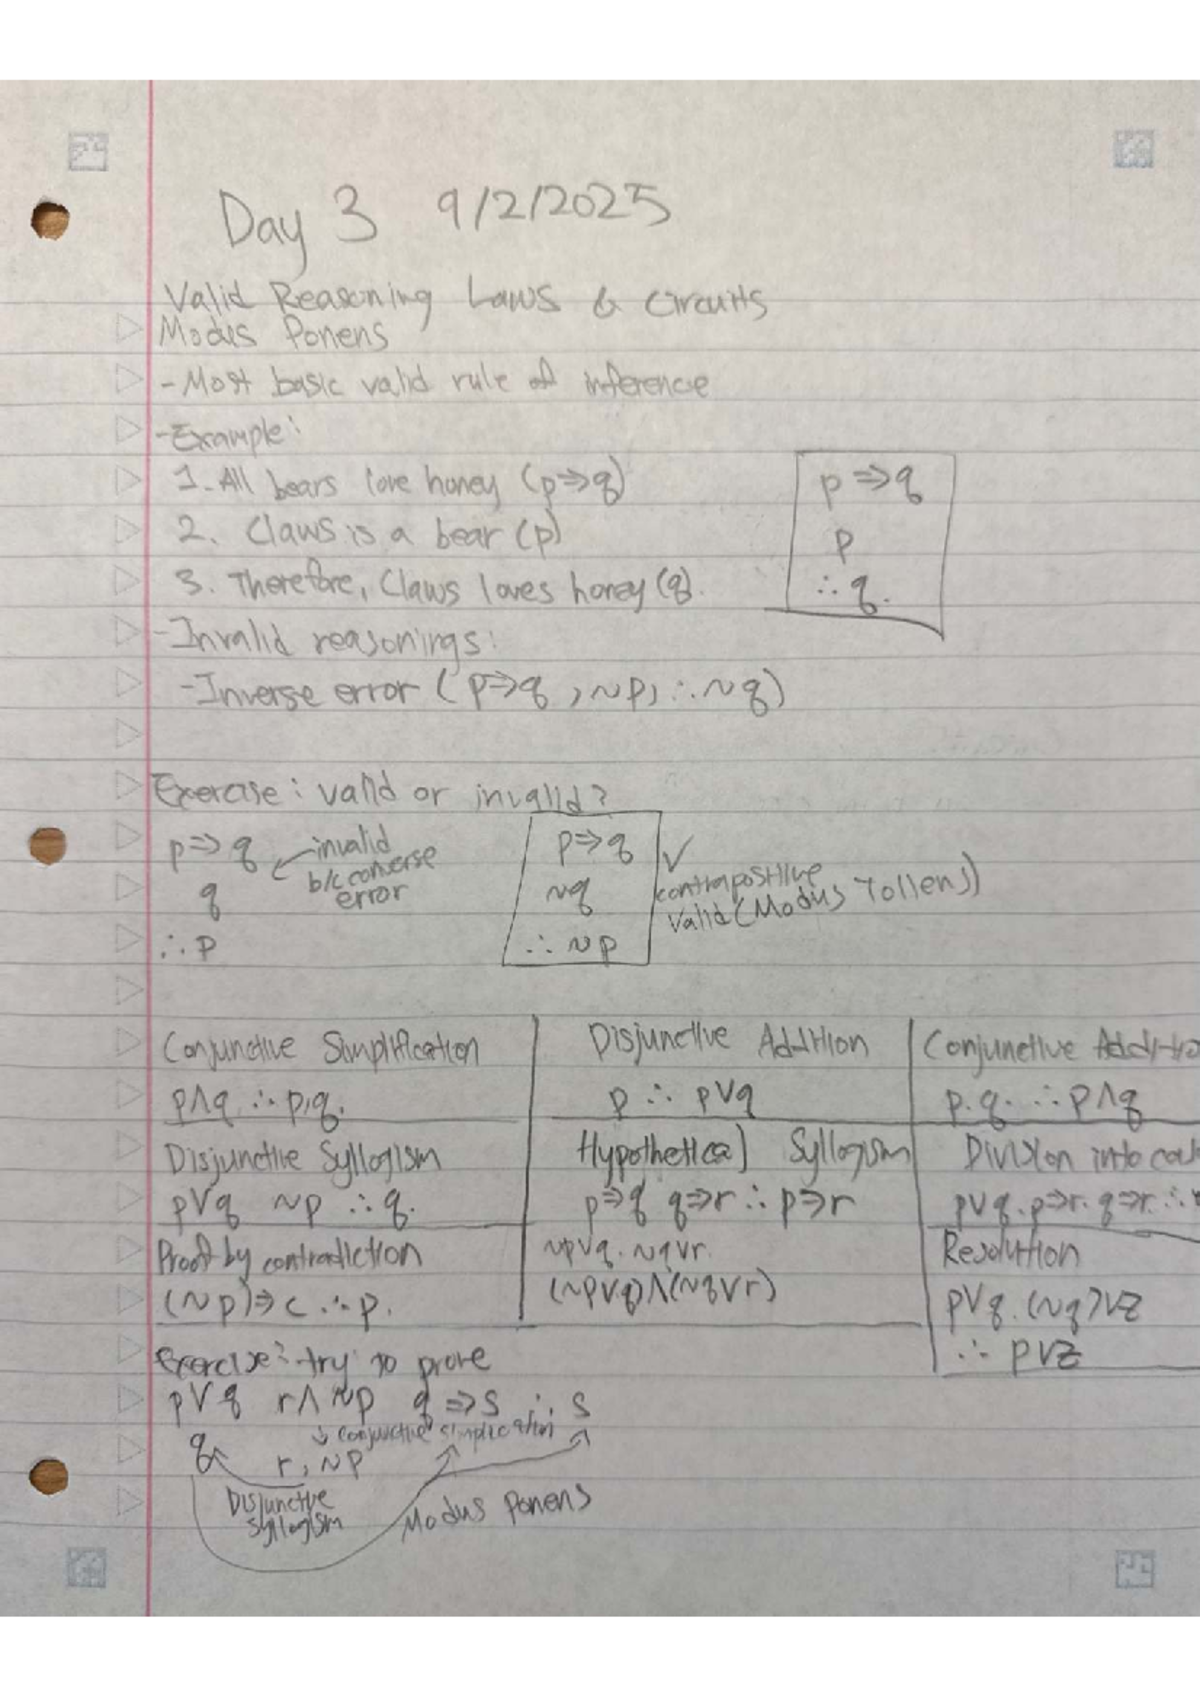 Day 3 9/2/2025
Valid Reasoning Laws & Circuits
Modus Ponens
- Most basic valid rule of inference
- Example:
1. All bears love honey (p⇒q)
2. Claws is a bear (p)
3. Therefore, Claws loves honey (q).
p⇒q
p
∴ q.
- Invalid reasonings:
- Inverse error (p⇒q, ~p, ∴ ~q)
Exercise: valid or invalid?
p⇒q
q
∴ p
invalid
b/c converse
error
p⇒q
~q
∴ ~p
✓
contrapositive
Valid (Modus Tollens)
Conjunctive Simplification
p∧q ∴ p,q.
Disjunctive Addition
p ∴ p∨q
Conjunctive Additio
p. q. ∴ p∧q
Disjunctive Syllogism
p∨q ~p ∴ q.
Hypothetical Syllogism
p⇒q q⇒r ∴ p⇒r
~p∨q. ~q∨r.
(~p∨q)∧(~q∨r)
Division into
p∨q. p⇒r. q⇒r. ∴
Proof by contradiction
(~p)⇒c ∴ p.
Resolution
p∨q. (~q)∨z
∴ p∨z
Exercise: try to prove
p∨q r∧~p q⇒s ∴ s
↓ conjunctive simplication
q r, ~p
Disjunctive
syllogism
Modus Ponens